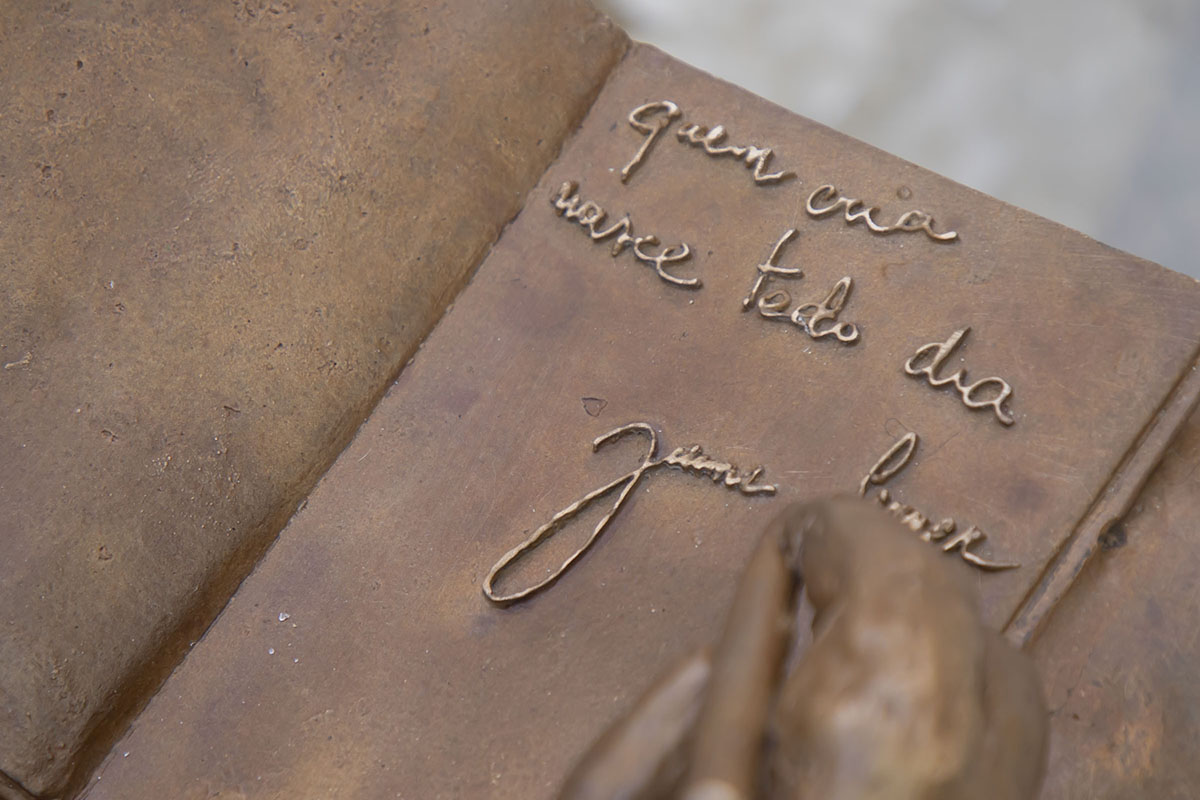 quem cria
nasce todo dia
Jaime Lerner